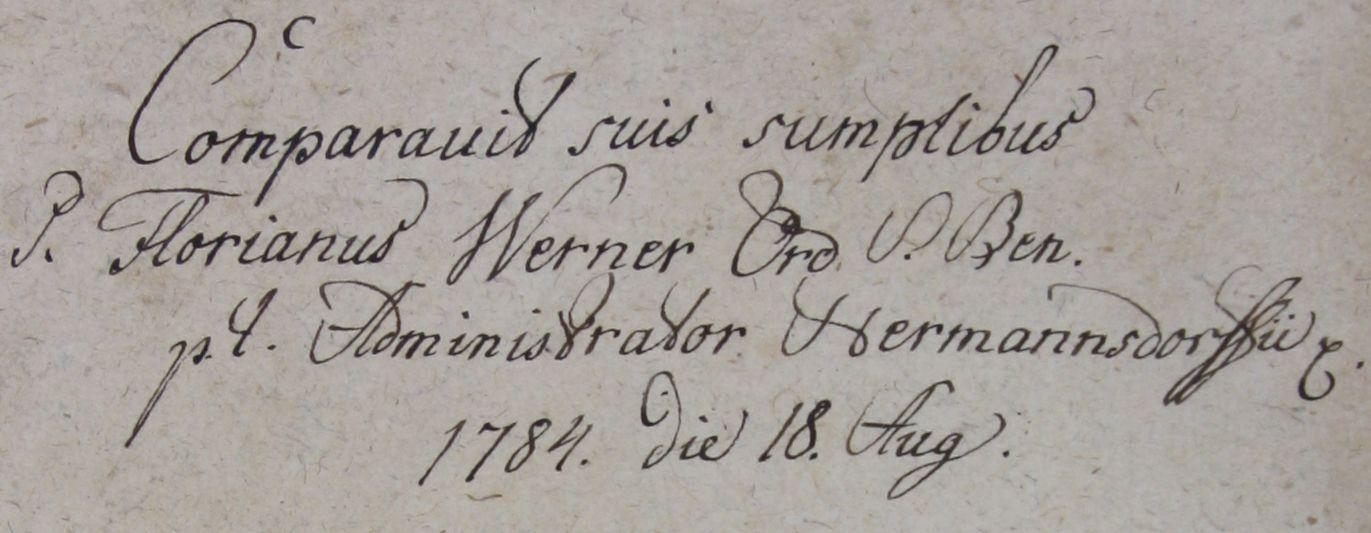 Comparauit suis sumptibus
P. Florianus Werner Ord. S. Ben.
p.t. Administrator Hermannsdorffii
1784. die 18. Aug.